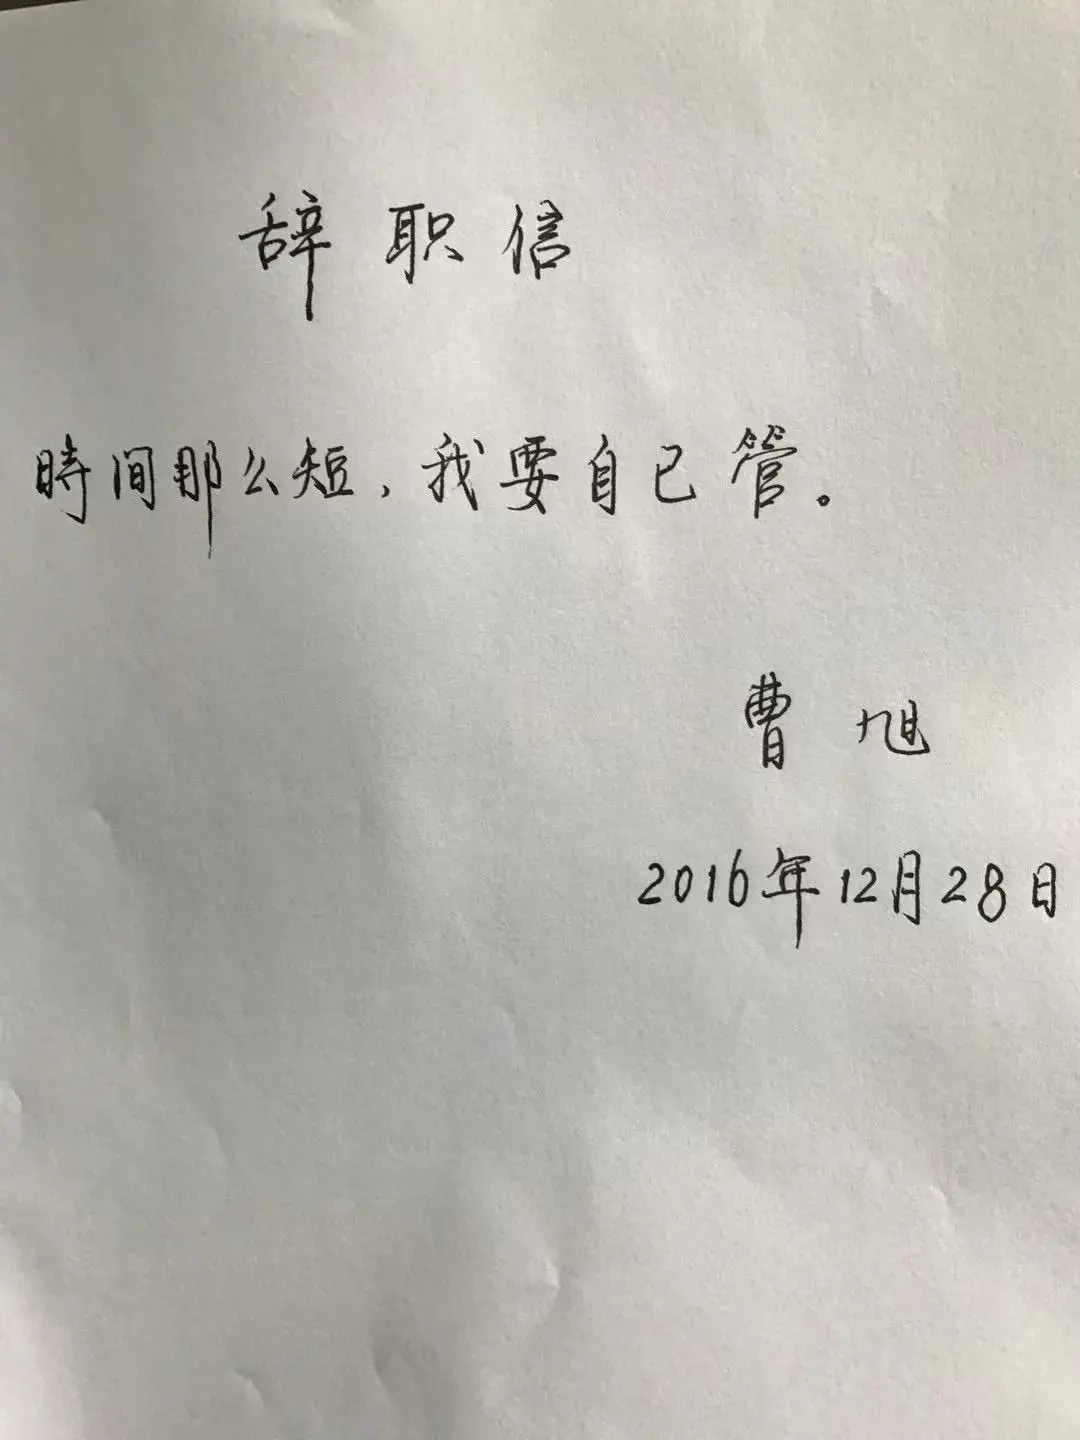 辞职信
時间那么短,我要自己管。
曹旭
2016年12月28日